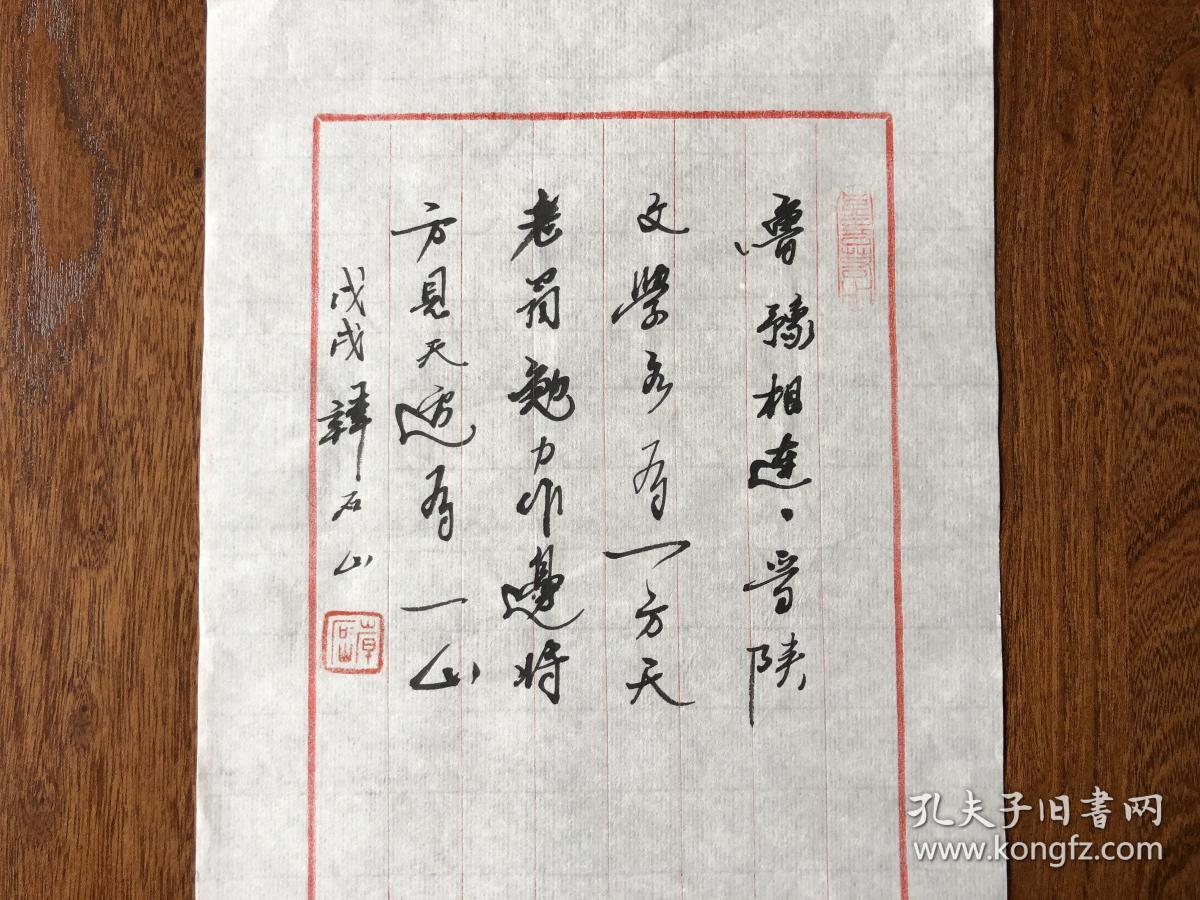 魯豫相連々晋陝
文學各有一方天
老勉力作邊将
方見天邊有一山
戊戌韓石山
孔夫子旧书网
www.kongfz.com